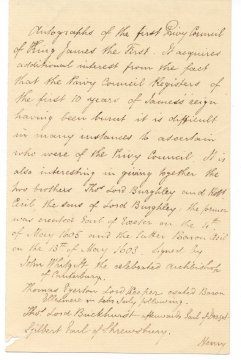 Autographs of the first Privy Council
of King James the First. It acquires
additional interest from the fact
that the Privy Council Registers of
the first 10 years of James's reign
having been burnt it is difficult
in many instances to ascertain
who were of the Privy Council. It is
also interesting in giving together the
two brothers Thos Lord Burghley and Robt
Cecil the sons of Lord Burghley. the former
was created Earl of Exeter on the 4th
of May 1605 and the latter Baron Cecil
on the 13th of May 1603 Signed by
John Whitgift the celebrated Archbishop
of Canterbury.
Thomas Egerton Lord Keeper created Baron
Ellesmere in July following.
Thos Lord Buckhurst afterwards Earl of Dorset
Gilbert Earl of Shrewsbury.
Henry